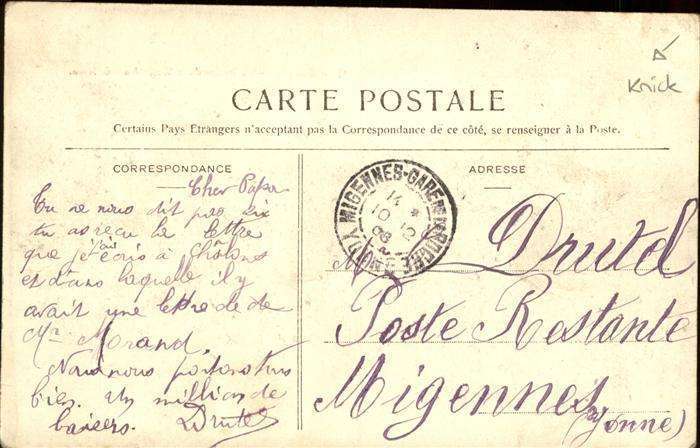 Knick
CARTE POSTALE
Certains Pays Etrangers n'acceptant pas la Correspondance de ce côté, se renseigner à la Poste.
CORRESPONDANCE
Cher Papa
Tu ne nous dit pas six
tu as reçu la lettre
que j'ais écris à Châlons
et dans laquelle il y
avait une lettre de de
Mr Morand.
Nous nous portons tous
bien. Un million de
baisers. Drutel
ADRESSE
MIGENNES-GARE
14 *
10 12
08
M Drutel
Poste Restante
Migennes
(Yonne)